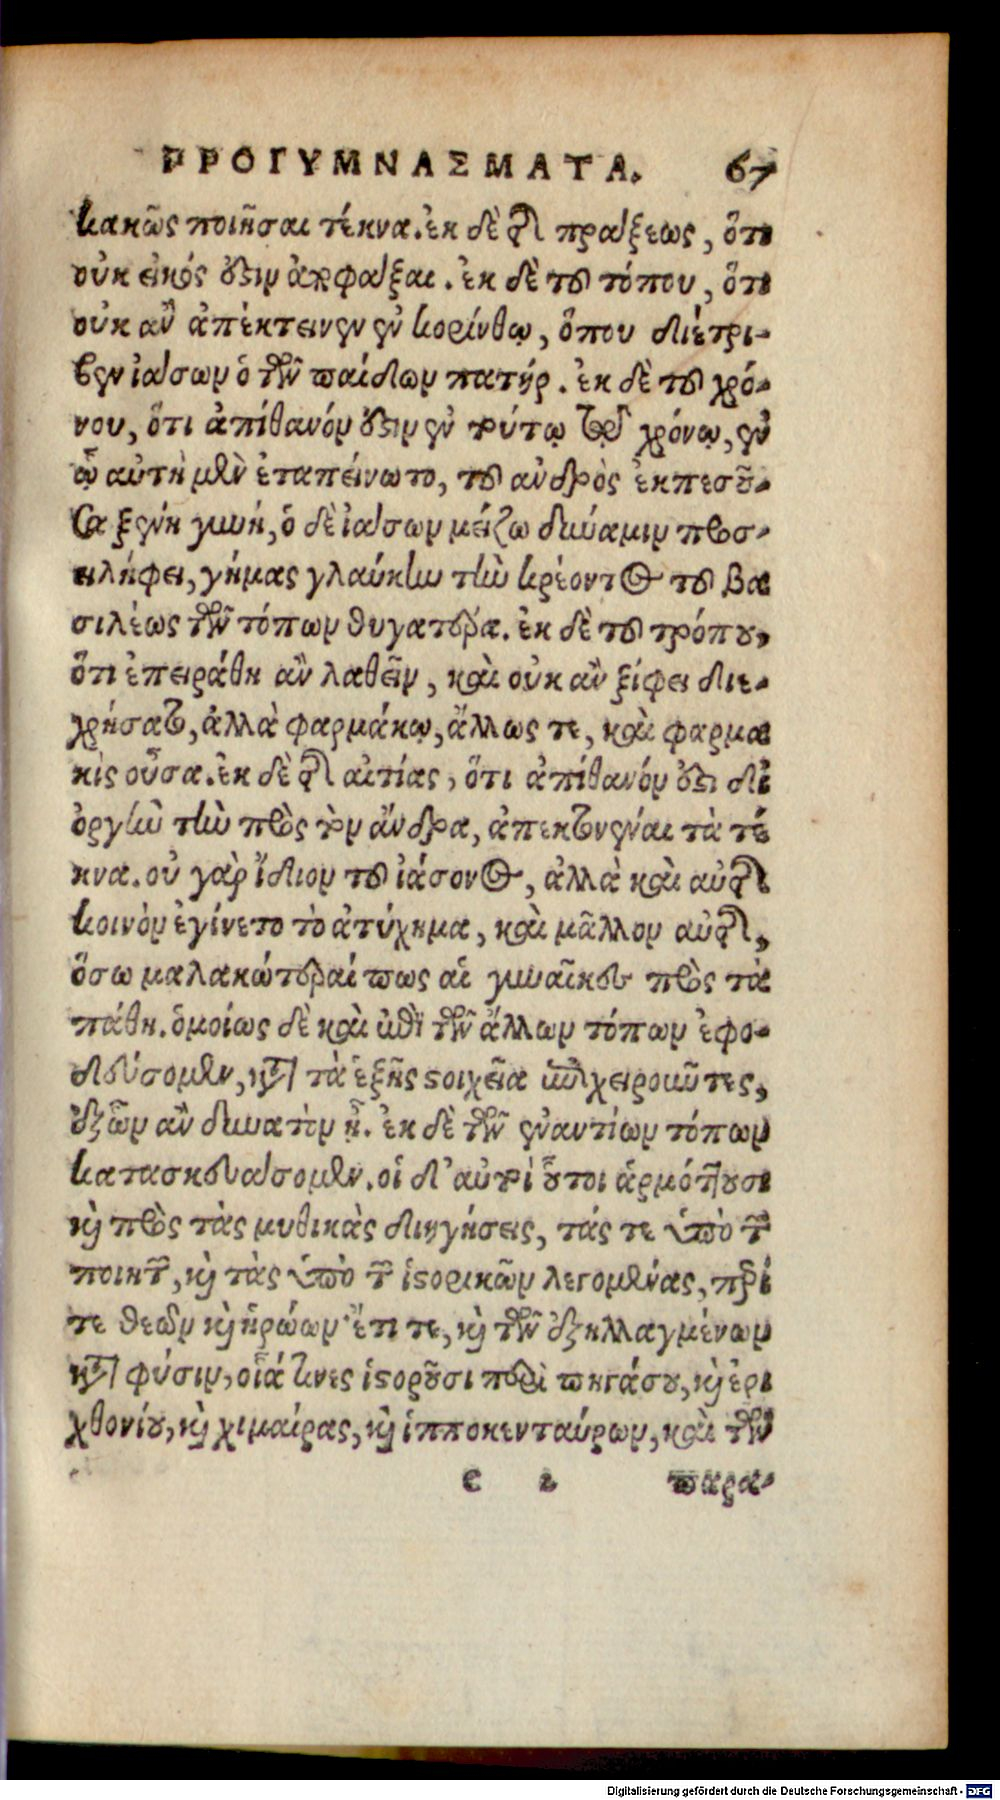 ΠΡΟΓΥΜΝΑΣΜΑΤΑ. 67
κακῶς ποιῆσαι τέκνα. ἐκ δὲ τῆς πράξεως, ὅτι
οὐκ εἰκός ἐστιν ἀποσφάξαι. ἐκ δὲ τοῦ τόπου, ὅτι
οὐκ ἂν ἀπέκτεινεν ἐν κορίνθῳ, ὅπου διέτρι-
βεν ἰάσων ὁ τῶν παίδων πατήρ. ἐκ δὲ τοῦ χρό-
νου, ὅτι ἀπίθανόν ἐστιν ἐν τούτῳ τῷ χρόνῳ, ἐν
ᾧ αὐτὴ μὲν ἐταπείνωτο, τοῦ ἀνδρὸς ἐκπεσοῦ-
σα ξένη γυνή, ὁ δὲ ἰάσων μείζω δύναμιν προσ-
ειλήφει, γήμας γλαύκην τὴν κρέοντος τοῦ βα
σιλέως τῶν τόπων θυγατέρα. ἐκ δὲ τοῦ τρόπου,
ὅτι ἐπειράθη ἂν λαθεῖν, καὶ οὐκ ἂν ξίφει διε-
χρήσατο, ἀλλὰ φαρμάκῳ, ἄλλως τε, καὶ φαρμα
κὶς οὖσα. ἐκ δὲ τῆς αἰτίας, ὅτι ἀπίθανόν ἐστι δι᾽
ὀργὴν τὴν πρὸς τὸν ἄνδρα, ἀπεκτονέναι τὰ τέ
κνα. οὐ γὰρ ἴδιον τοῦ ἰάσονος, ἀλλὰ καὶ αὐτῆς
κοινὸν ἐγίνετο τὸ ἀτύχημα, καὶ μᾶλλον αὐτῆς,
ὅσω μαλακώτεραί πως αἱ γυναῖκες πρὸς τὰ
πάθη. ὁμοίως δὲ καὶ ἐπὶ τῶν ἄλλων τόπων ἐφο-
δεύσομεν, κατὰ τὰ ἑξῆς στοιχεῖα ἐπιχειροῦντες,
ἐξ ὧν ἂν δυνατὸν ᾖ. ἐκ δὲ τῶν ἐναντίων τόπων
κατασκευάσομεν. οἱ δ᾽ αὐτοὶ οὗτοι ἁρμόττουσι
καὶ πρὸς τὰς μυθικὰς διηγήσεις, τάς τε ὑπὸ τῶν
ποιητῶν, καὶ τὰς ὑπὸ τῶν ἱστορικῶν λεγομένας, περί
τε θεῶν καὶ ἡρώων· ἔτι τε, καὶ τῶν ἐξηλλαγμένων
κατὰ φύσιν, οἷά τινες ἱστοροῦσι περὶ πηγάσου, καὶ ἐρι
χθονίου, καὶ χιμαίρας, καὶ ἱπποκενταύρων, καὶ τῶν
e 2 παρα-
Digitalisierung gefördert durch die Deutsche Forschungsgemeinschaft - DFG